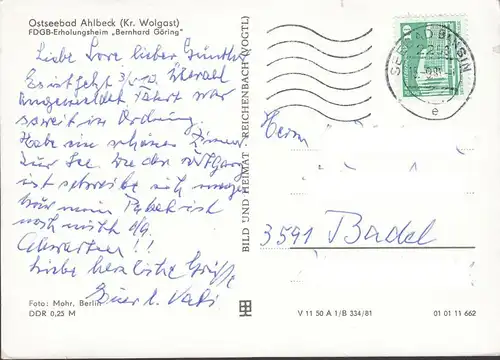 Ostseebad Ahlbeck (Kr. Wolgast)
FDGB-Erholungsheim „Bernhard Göring"
Liebe Lore lieber Günther
Es ist jetzt
angemeldet Fahrt war
soweit in Ordnung.
Habe ein schönes Zimmer
zur See. Wie der
ist schreibe ich morgen
noch nicht da.
Abwarten!!
Liebe herzliche Grüße
Euer l. Vati
Foto: Mohr, Berlin
DDR 0,25 M
BILD UND HEIMAT REICHENBACH (VOGTL)
SEEBAD BANSIN
e
10
Herrn
3591 Badel
V 11 50 A 1/B 334/81
01 01 11 662